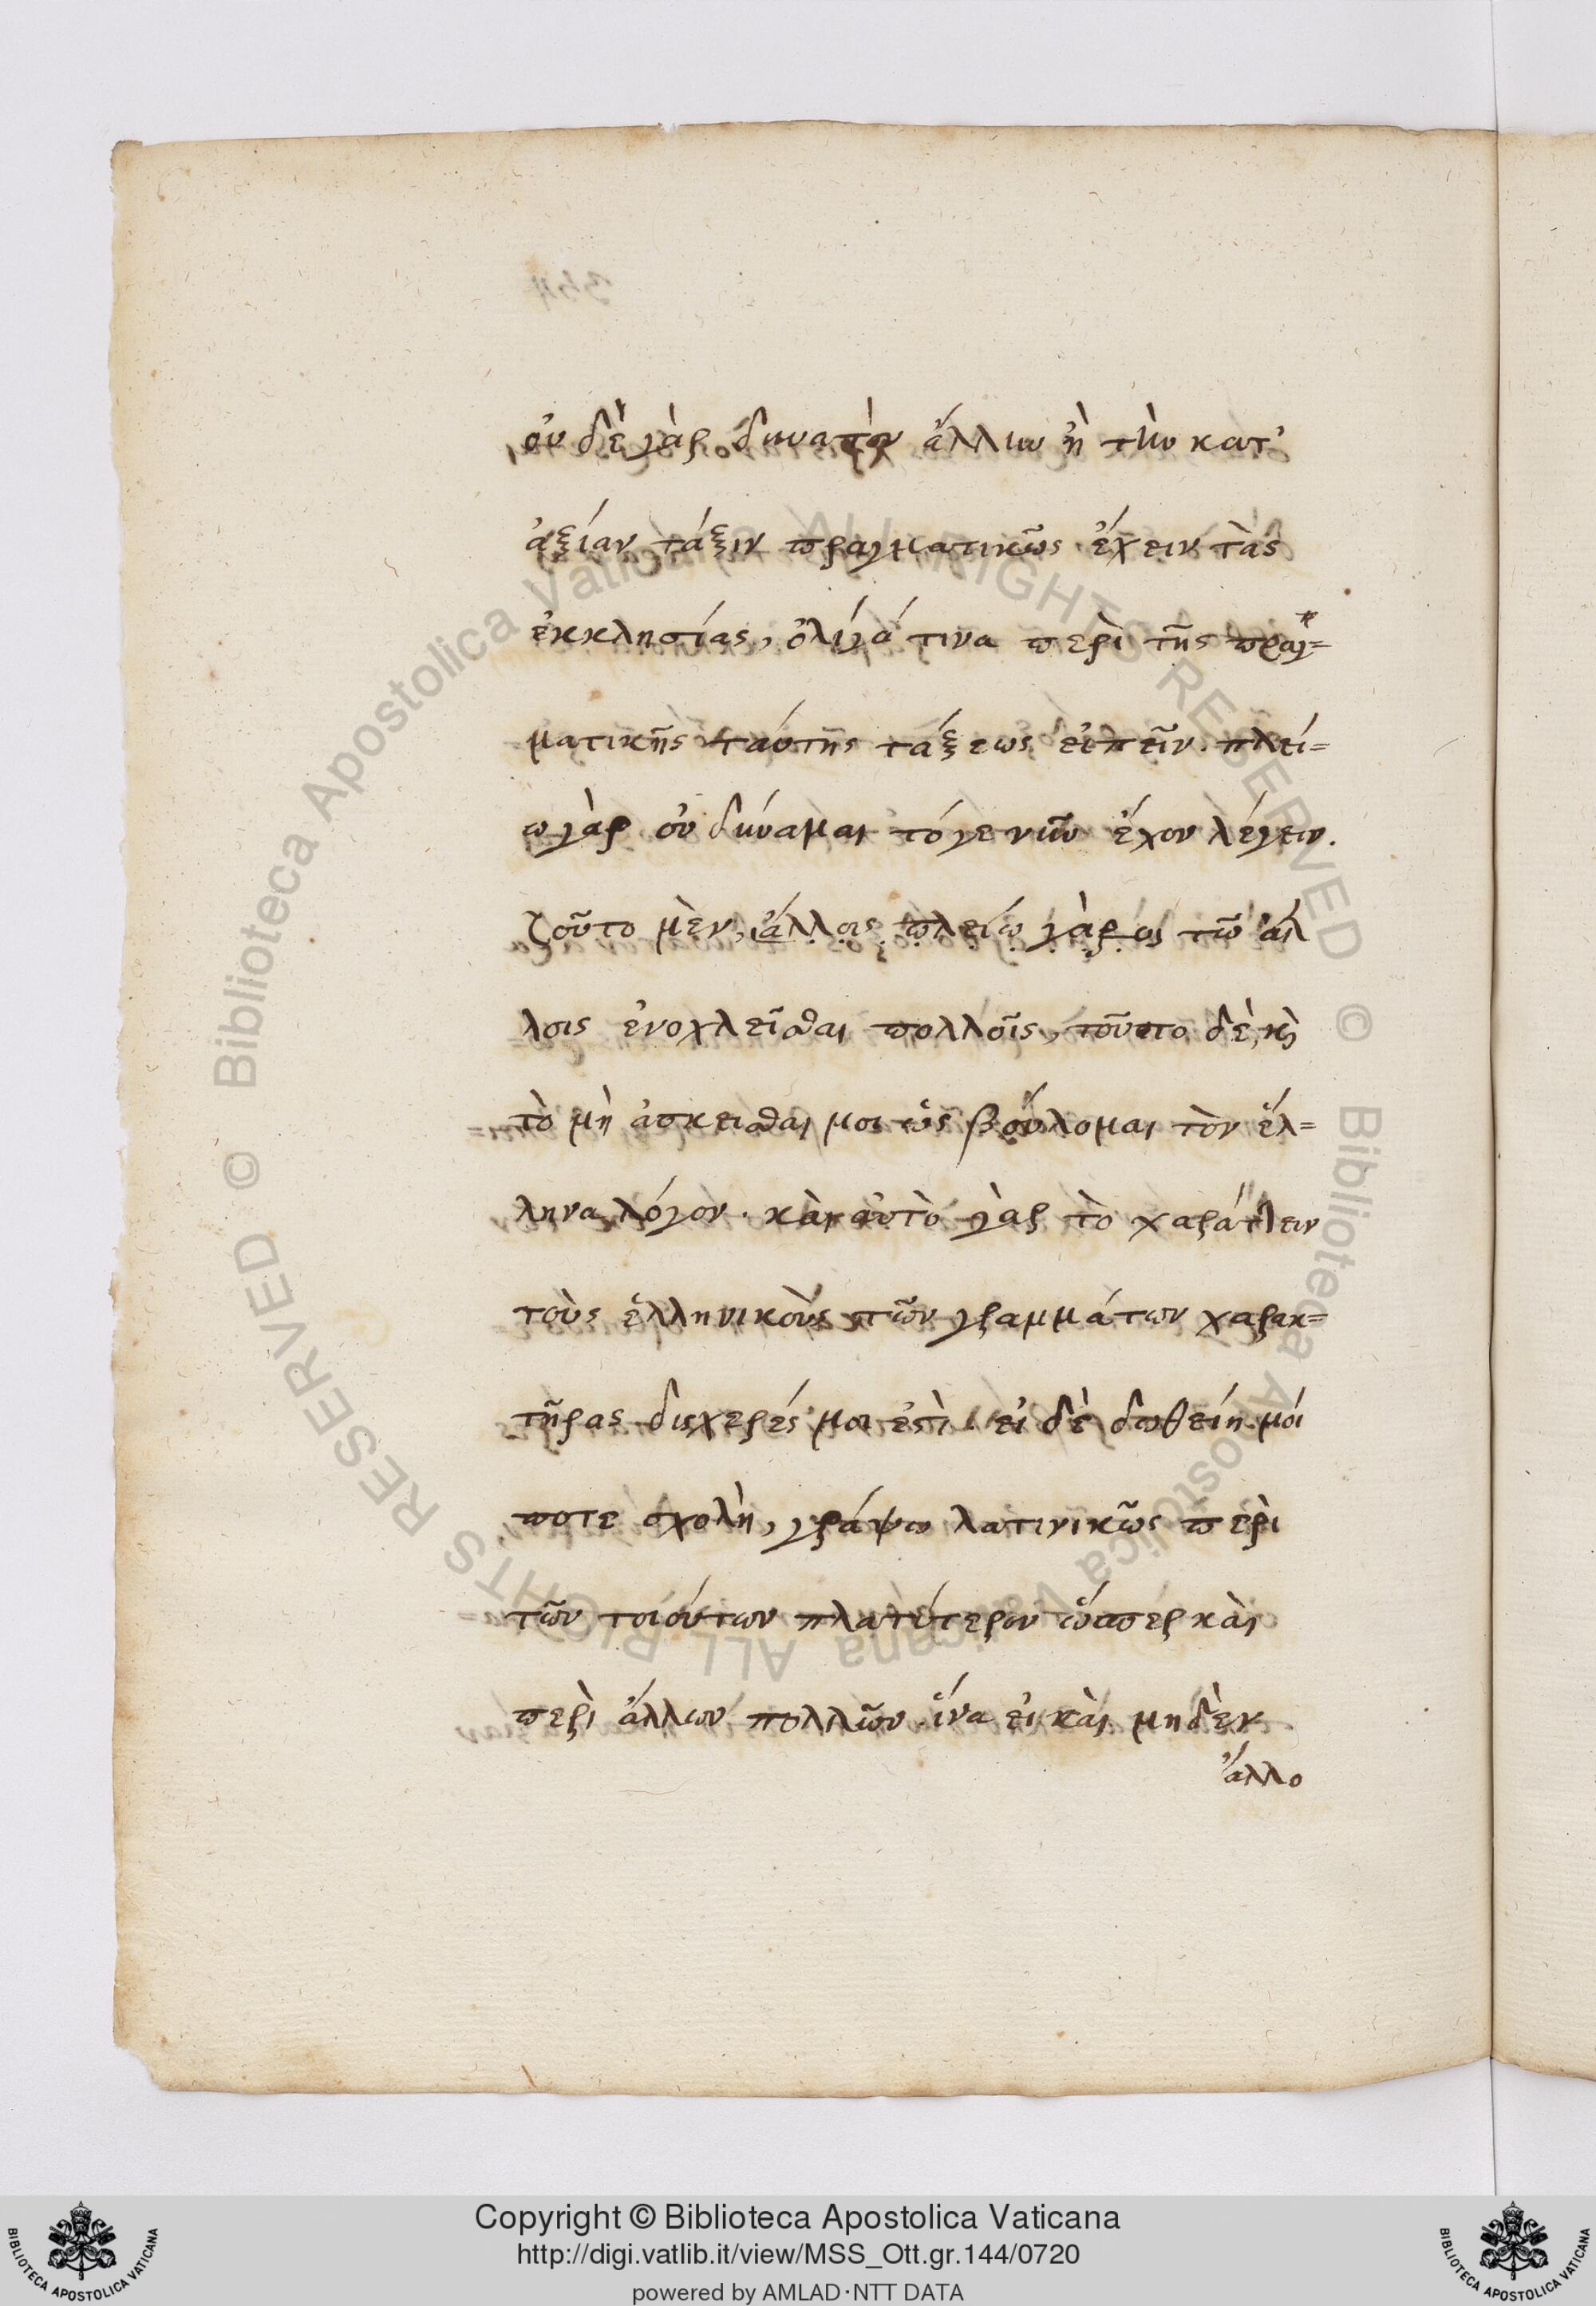 οὐ δὲ γὰρ δυνατὸν ἄλλην ἢ τὴν κατ'
ἀξίαν τάξιν πραγματικῶς ἔχειν τὰς
ἐκκλησίας, ὀλίγά τινα περὶ τῆς πραγ=
ματικῆς ταύτης τάξεως εἰπεῖν. πλεί=
ω γὰρ οὐ δύναμαι τόγε νῦν ἔχον λέγειν.
τοῦτο μὲν, ἄλλοις πλείω γὰρ οὐ τῶ ἀλ
λοις ἐνοχλεῖσθαι πολλοῖς, τοῦτο δὲ, καὶ
τὸ μὴ ἀσκεῖσθαι μοι ὡς βούλομαι τὸν ἕλ=
ληνα λόγον. καὶ αὐτὸ γὰρ τὸ χαράττειν
τοὺς ἑλληνικοὺς τῶν γραμμάτων χαρακ=
τῆρας δυσχερές μοι ἐστὶ. εἰ δὲ δοθείη μοί
ποτε σχολὴ, γράψω λατινικῶς περὶ
τῶν τοιούτων πλατύτερον ὥσπερ καὶ
περὶ ἄλλων πολλῶν. ἵνα εἰ καὶ μηδὲν
ἄλλο
© Biblioteca Apostolica Vaticana ALL RIGHTS RESERVED © Biblioteca Apostolica Vaticana ALL RIGHTS RESERVED
Copyright © Biblioteca Apostolica Vaticana
http://digi.vatlib.it/view/MSS_Ott.gr.144/0720
powered by AMLAD·NTT DATA
BIBLIOTECA APOSTOLICA VATICANA
BIBLIOTECA APOSTOLICA VATICANA